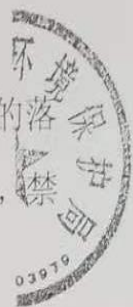 环境保护局
的落
，禁
03979